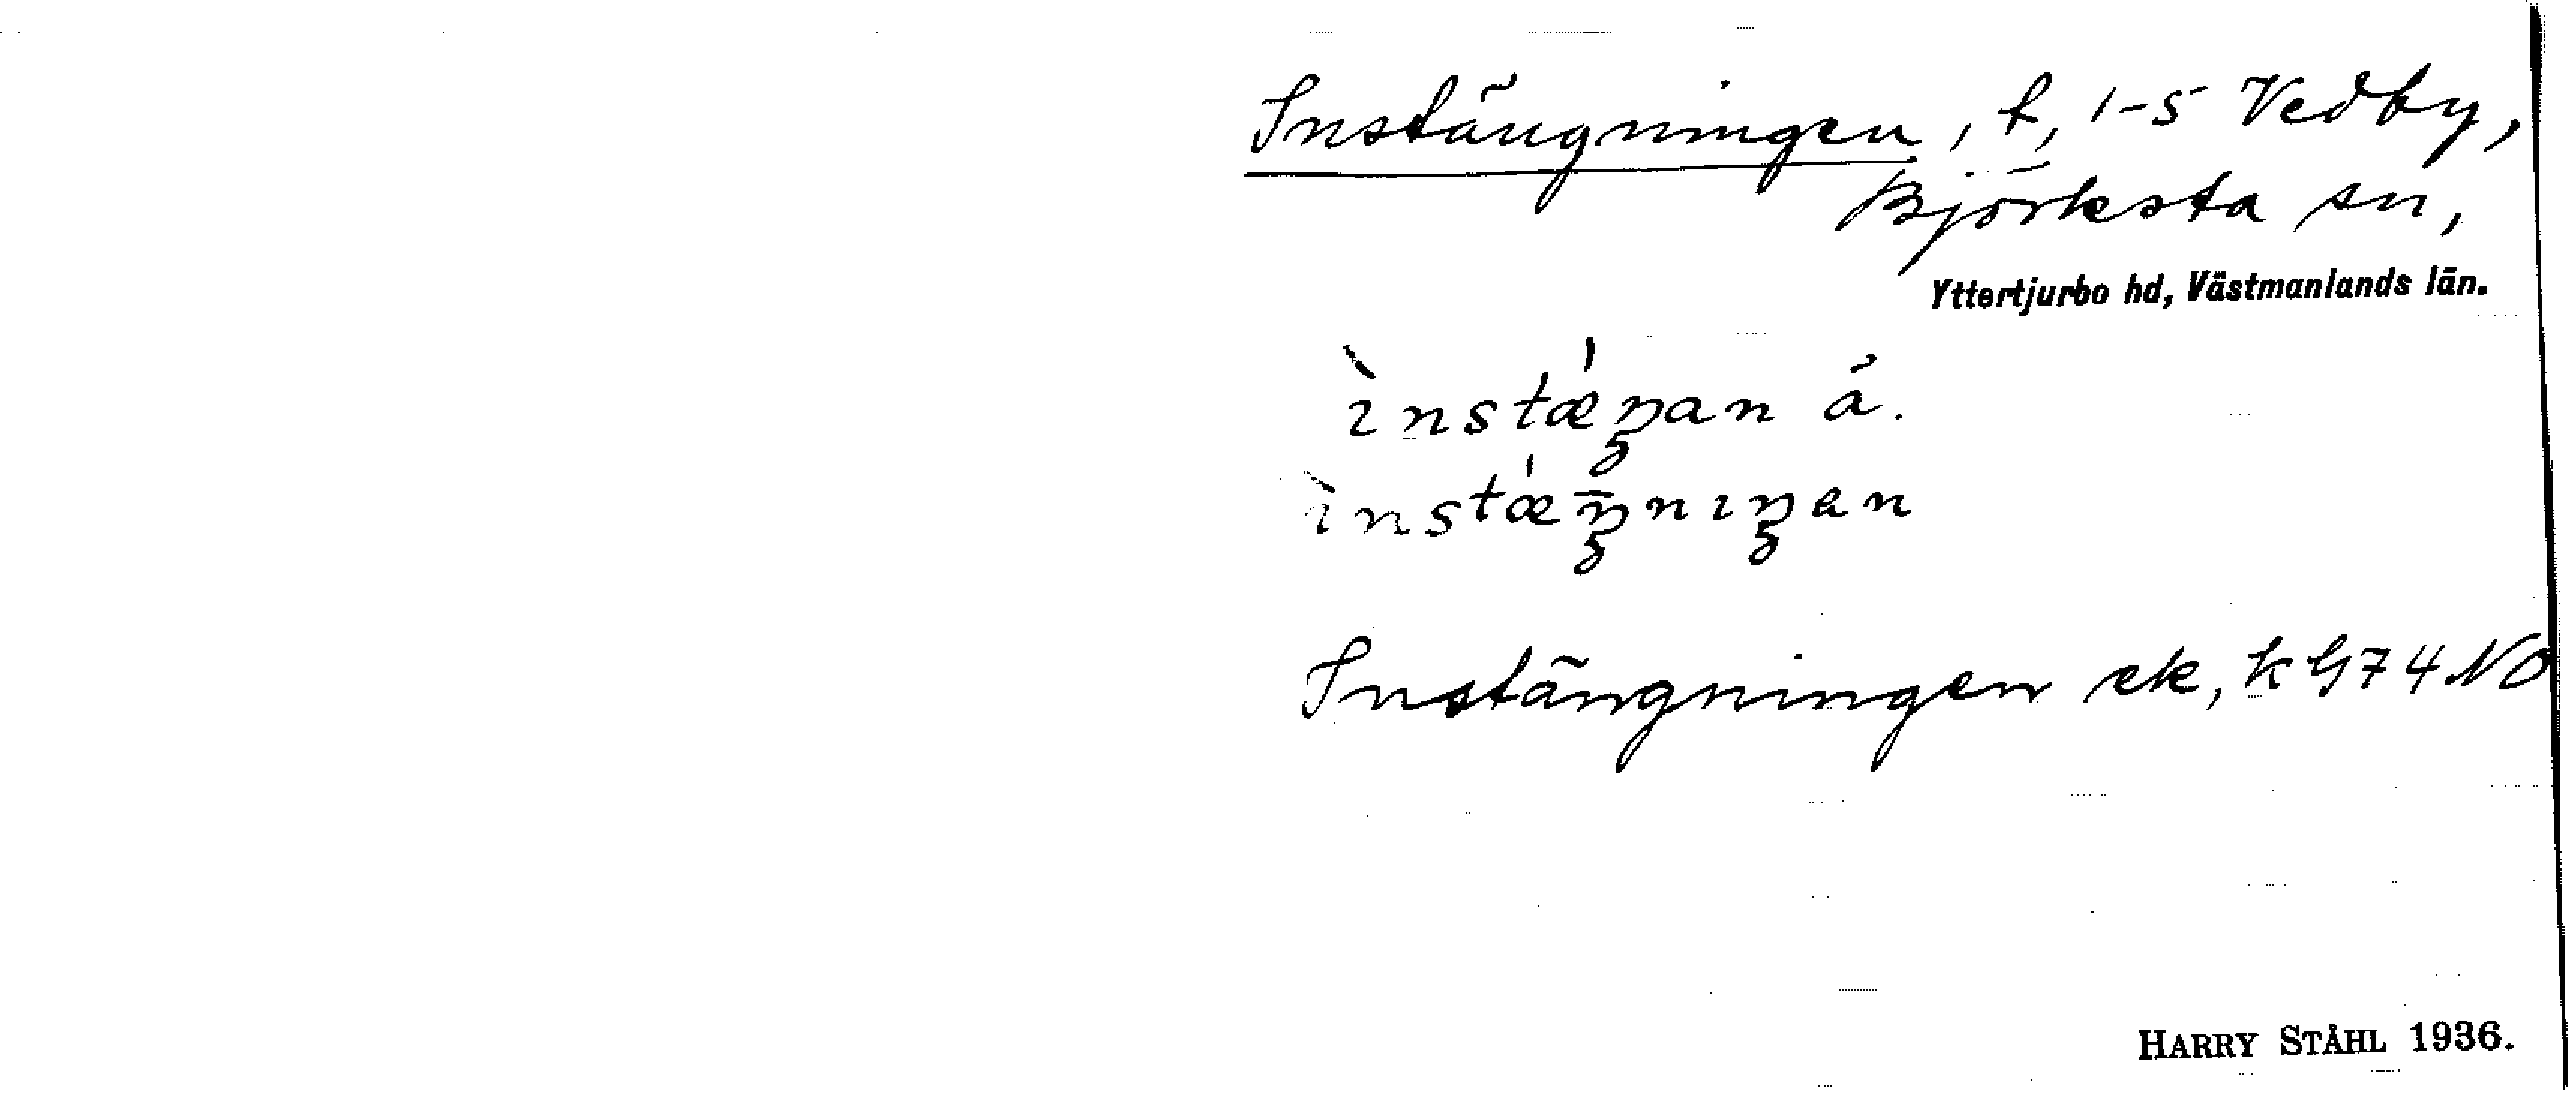 Instängningen, t, 1-5 Vedby,
Björksta sn,
Yttertjurbo hd, Västmanlands län.
ìnstǽŋan ä.
ìnstǽŋ̄nıŋən
Instängningen ek, k G74 NO
HARRY STÅHL 1936.